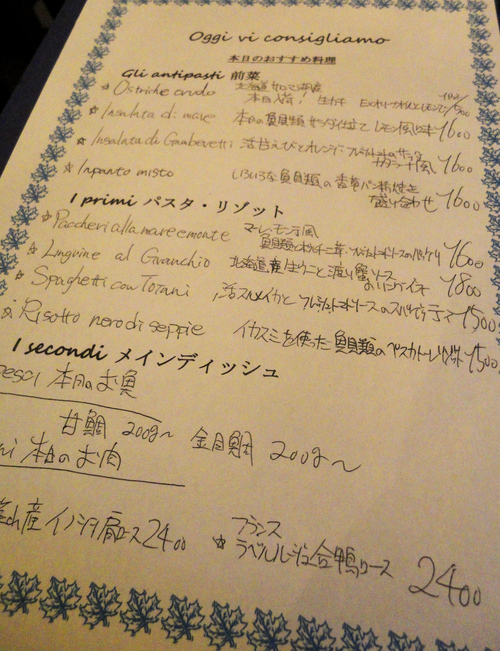 Oggi vi consigliamo
本日のおすすめ料理
Gli antipasti 前菜
Ostriche crudo 北海道 産
本日入荷! 生カキ
Insalata di mare 本日の魚貝類 サラダ仕立て レモン風味 1600
Insalata di 活 えびとオレンジ 1600
Inpanto misto いろいろな魚貝類の香草パン粉焼き
盛り合わせ 1600
I primi パスタ・リゾット
Paccheri alla mare e monte マーレ・モンテ風
魚貝類と フレッシュトマトソースのパッケリ 1600
Linguine al Granchio 北海道産生うにと渡り蟹ソース
のリングイネ 1800
Spaghetti con Totani 活スルメイカとフレッシュトマトソースのスパゲッティ 1500
Risotto nero di seppie イカスミを使った魚貝類のペスカトーレリゾット 1500
I secondi メインディッシュ
pesci 本日のお魚
甘鯛 200g〜 金目鯛 200g〜
ni 本日のお肉
産 イノシシ肩ロース 2400
フランス
ラベルルージュ合鴨ロース 2400